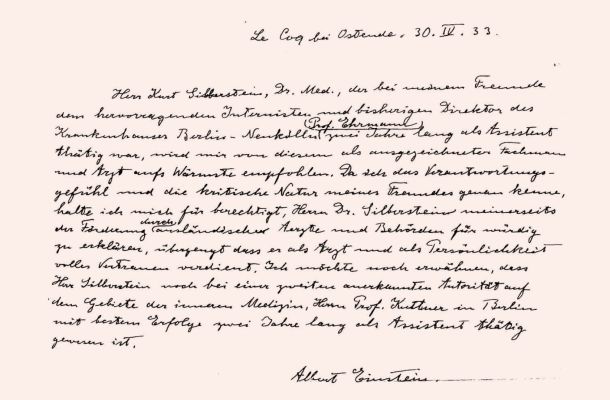 Le Coq bei Ostende. 30. IV. 33.
Herr Kurt Silberstein, Dr. Med., der bei meinem Freunde
dem hervorragenden Internisten und bisherigen Direktor des
Krankenhauses Berlin-Neukölln (Prof. Ehrmann) zwei Jahre lang als Assistent
thätig war, wird mir von diesem als ausgezeichneter Fachmann
und Arzt aufs Wärmste empfohlen. Da ich das Verantwortungs-
gefühl und die kritische Natur meines Freundes genau kenne,
halte ich mich für berechtigt, Herrn Dr. Silberstein meinerseits
der Förderung durch ausländischen Aerzte und Behörden für würdig
zu erklären, überzeugt dass er als Arzt und als Persönlichkeit
volles Vertrauen verdient. Ich möchte noch erwähnen, dass
Herr Silberstein noch bei einer zweiten anerkannten Autorität auf
dem Gebiete der inneren Medizin, Herrn Prof. Kuttner in Berlin
mit bestem Erfolge zwei Jahre lang als Assistent thätig
gewesen ist.
Albert Einstein.